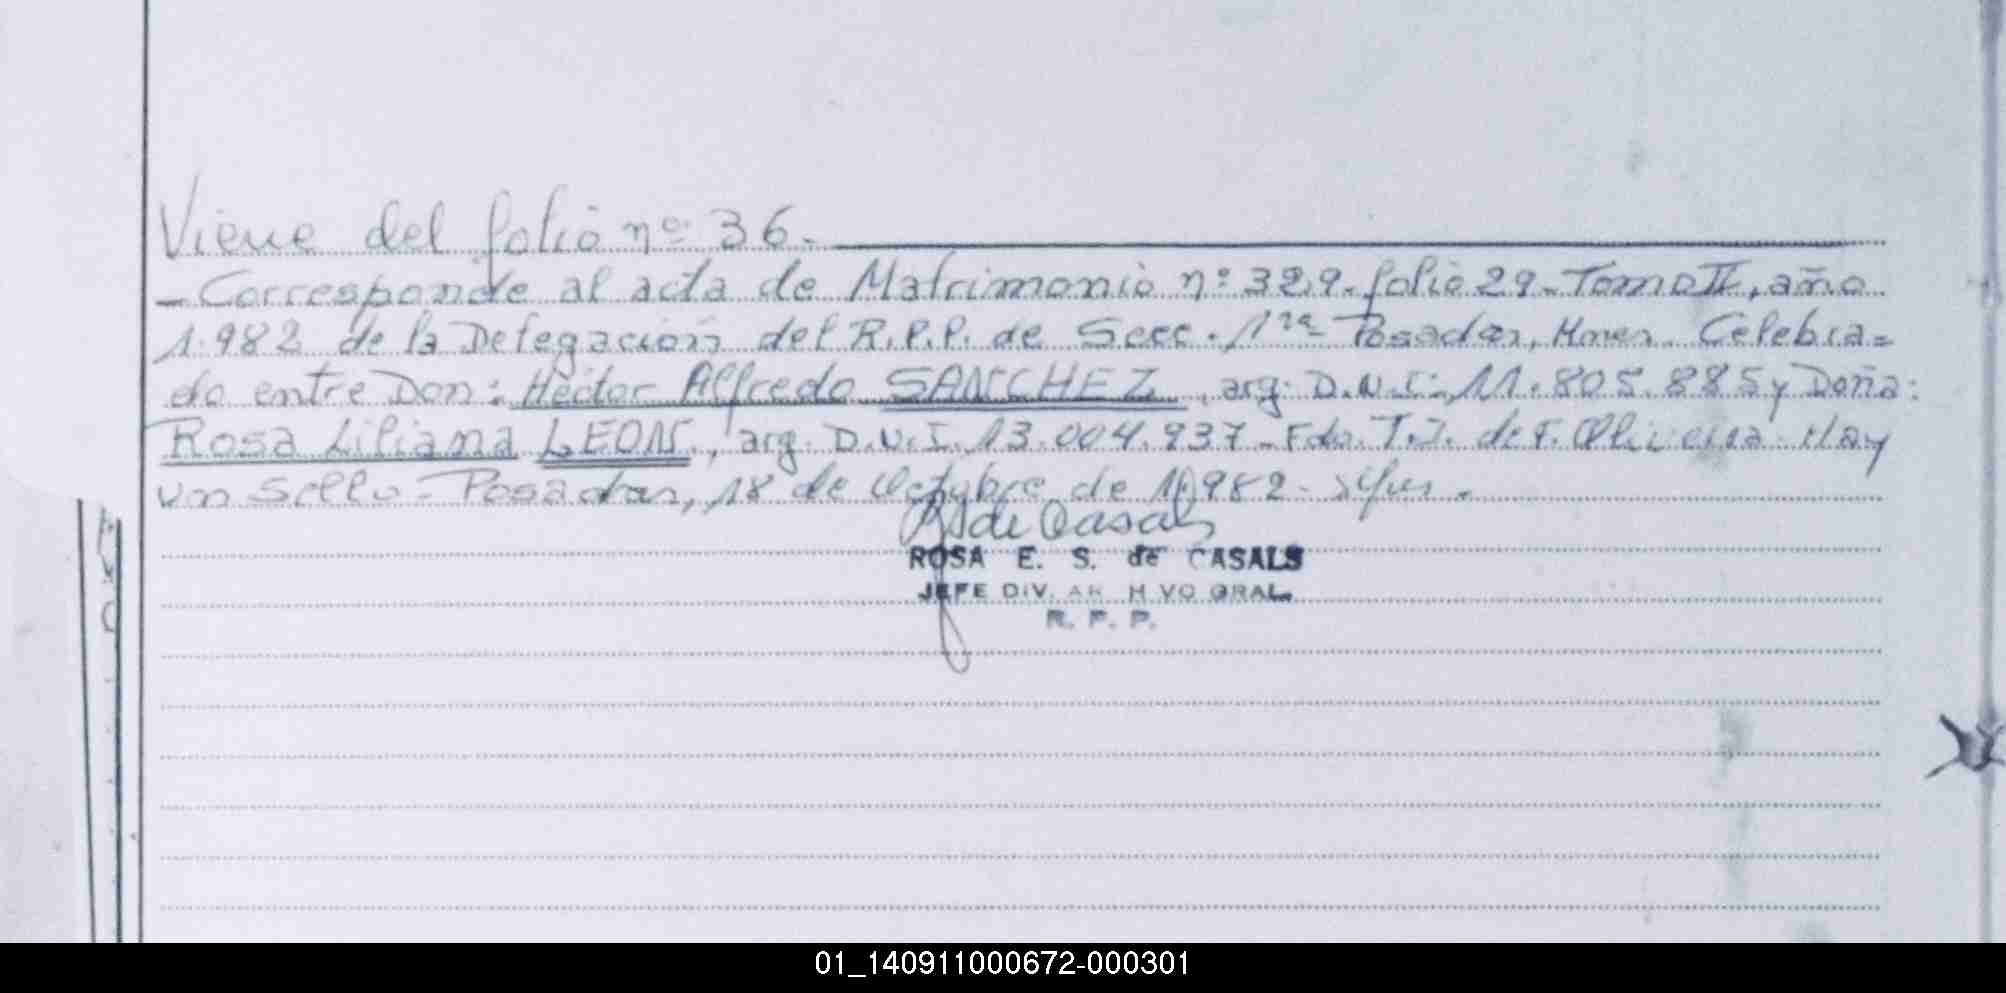 Viene del folio nº 36.
- Corresponde al acta de Matrimonio nº 329 - folio 29 - Tomo II, año
1.982 de la Delegación del R.P.P. de Secc. 1ra Posadas, Mnes. Celebra=
do entre Don: Héctor Alfredo SANCHEZ, arg. D.N.I. 11.805.885 y Doña:
Rosa Liliana LEON, arg. D.N.I. 13.004.937 - Fdo. T.J. de F. Oliveira. Hay
un sello - Posadas, 18 de Octubre de 1.982.
R S de Casals
ROSA E. S. de CASALS
JEFE DIV. AR H VO GRAL.
R. P. P.
01_140911000672-000301